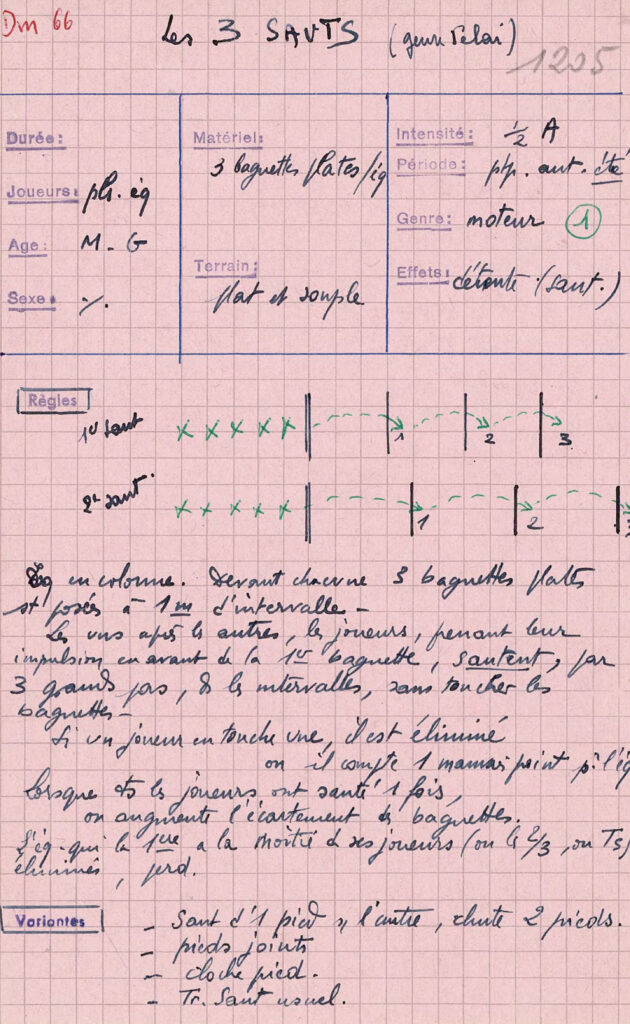 Dm 66
Les 3 SAUTS (genre relai)
1205
Durée:
Joueurs: pls. éq
Age: M - G
Sexe: ./.
Matériel:
3 baguettes plates/éq
Terrain:
plat et souple
Intensité: ½ A
Période: ptp. aut. été
Genre: moteur 1
Effets: détente (saut.)
Règles
1er saut
1 2 3
2e saut.
1 2 3
Eq en colonne. Devant chacune 3 baguettes plates
st posées à 1m d'intervalle -
Les uns après les autres, les joueurs, prenant leur
impulsion en avant de la 1ère baguette, sautent, par
3 grands pas, ds les intervalles, sans toucher les
baguettes -
Si un joueur en touche une, il est éliminé
ou il compte 1 mauvais point pr l'éq
Lorsque ts les joueurs ont sauté 1 fois,
on augmente l'écartement des baguettes.
L'éq. qui la 1ère a la moitié de ses joueurs (ou les 2/3, ou Ts)
éliminés, perd.
Variantes
- Saut d'1 pied s/ l'autre, chute 2 pieds.
- pieds joints
- cloche pied.
- Tr. Saut usuel.